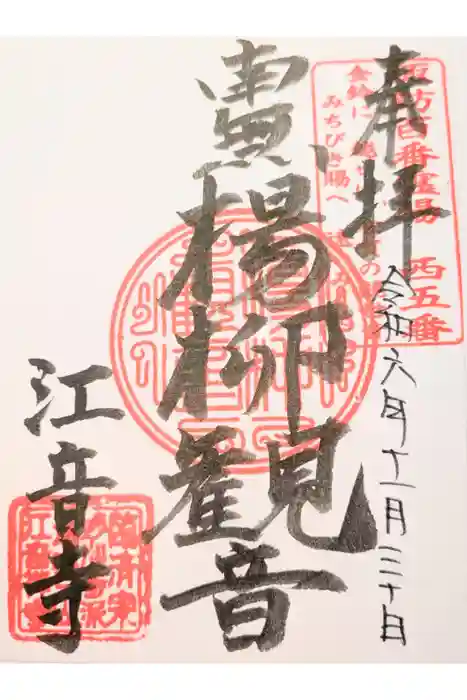 奉拝
諏訪百番霊場 西五番
金鈴に
みちびき賜へ
令和六年十一月三十日
楊柳観音
江音寺